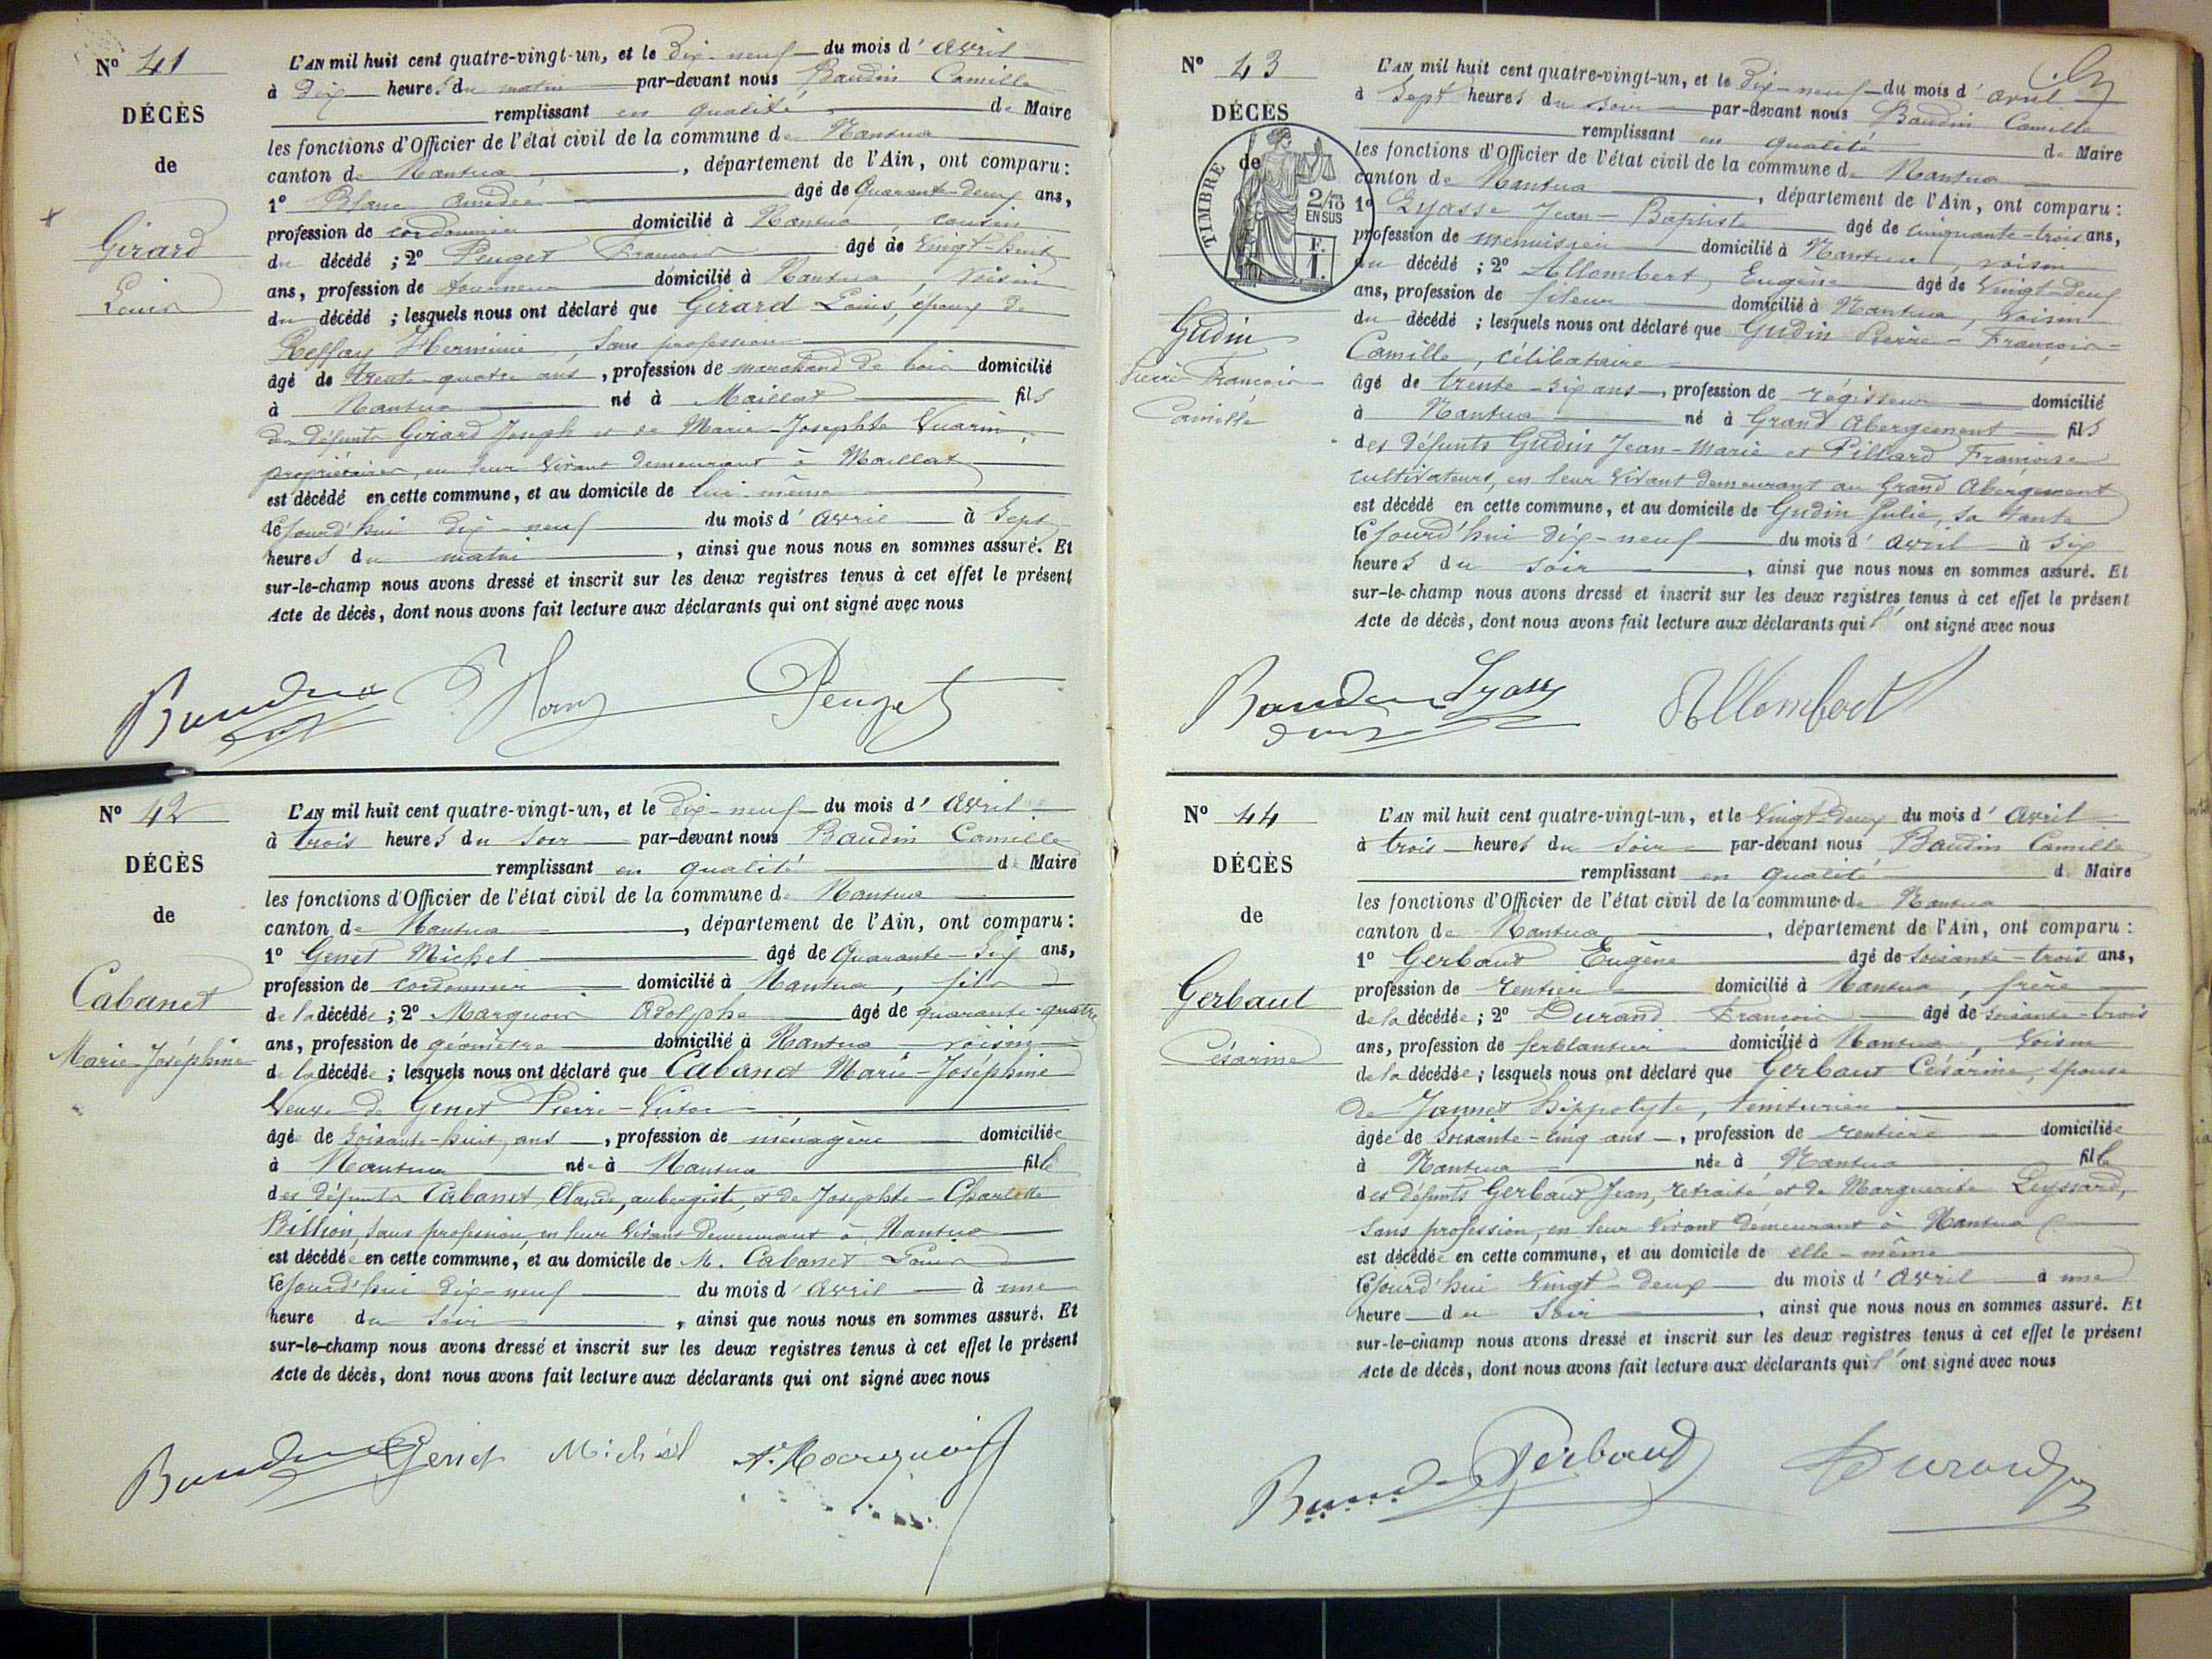 N° 41
DÉCÈS
de
Girard
Louis
L'AN mil huit cent quatre-vingt-un, et le Dix-neuf du mois d' Avril
à Dix heures du matin par-devant nous Baudin Camille
remplissant en qualité de Maire
les fonctions d'Officier de l'état civil de la commune de Nantua
canton de Nantua, département de l'Ain, ont comparu:
1° Blanc Amédée âgé de Quarante-deux ans,
profession de cordonnier domicilié à Nantua, cousin
du décédé ; 2° Peuget François âgé de Vingt-huit
ans, profession de tourneur domicilié à Nantua, voisin
du décédé ; lesquels nous ont déclaré que Girard Louis, époux de
Reffay Herminie, Sans profession
âgé de trente-quatre ans, profession de marchand de bois domicilié
à Nantua né à Maillat fils
de défunts Girard Joseph et de Marie-Josephte Vuarin,
propriétaires, en leur vivant demeurant à Maillat
est décédé en cette commune, et au domicile de lui-même
cejourd'hui dix-neuf du mois d' Avril à Sept
heures du matin, ainsi que nous nous en sommes assuré. Et
sur-le-champ nous avons dressé et inscrit sur les deux registres tenus à cet effet le présent
Acte de décès, dont nous avons fait lecture aux déclarants qui ont signé avec nous
Baudin Blanc Peuget
N° 42
DÉCÈS
de
Cabanet
Marie-Joséphine
L'AN mil huit cent quatre-vingt-un, et le Dix-neuf du mois d' Avril
à trois heures du Soir par-devant nous Baudin Camille
remplissant en qualité de Maire
les fonctions d'Officier de l'état civil de la commune de Nantua
canton de Nantua, département de l'Ain, ont comparu:
1° Genet Michel âgé de Quarante-Six ans,
profession de cordonnier domicilié à Nantua, fils
de la décédée ; 2° Marquois Adolphe âgé de quarante-quatre
ans, profession de géomètre domicilié à Nantua voisin
de la décédée ; lesquels nous ont déclaré que Cabanet Marie-Joséphine
Veuve de Genet Pierre-Victor
âgée de Soixante-huit ans, profession de ménagère domiciliée
à Nantua née à Nantua fille
des défunts Cabanet Claude, aubergiste, et de Josephte-Charlotte
Billion, Sans profession, en leur vivant demeurant à Nantua
est décédée en cette commune, et au domicile de M. Cabanet Louis
cejourd'hui dix-neuf du mois d' Avril à une
heure du Soir, ainsi que nous nous en sommes assuré. Et
sur-le-champ nous avons dressé et inscrit sur les deux registres tenus à cet effet le présent
Acte de décès, dont nous avons fait lecture aux déclarants qui ont signé avec nous
Baudin Genet Michel A. Marquois
N° 43
DÉCÈS
de
TIMBRE
2/10
EN SUS
F.
1.
Gudin
Pierre François
Camille
L'AN mil huit cent quatre-vingt-un, et le Dix-neuf du mois d' avril
à Sept heures du Soir par-devant nous Baudin Camille
remplissant en qualité de Maire
les fonctions d'Officier de l'état civil de la commune de Nantua
canton de Nantua, département de l'Ain, ont comparu:
1° Lyasse Jean-Baptiste âgé de Cinquante-trois ans,
profession de menuisier domicilié à Nantua, voisin
du décédé ; 2° Allombert Eugène âgé de Vingt-deux
ans, profession de fileur domicilié à Nantua, voisin
du décédé ; lesquels nous ont déclaré que Gudin Pierre-François-
Camille, célibataire
âgé de trente-six ans, profession de régisseur domicilié
à Nantua né à Grand Abergement fils
des défunts Gudin Jean-Marie et Pillard Françoise
cultivateurs, en leur vivant demeurant au Grand Abergement
est décédé en cette commune, et au domicile de Gudin Julie, Sa tante
cejourd'hui dix-neuf du mois d' avril à six
heures du Soir, ainsi que nous nous en sommes assuré. Et
sur-le-champ nous avons dressé et inscrit sur les deux registres tenus à cet effet le présent
Acte de décès, dont nous avons fait lecture aux déclarants qui l' ont signé avec nous
Baudin Lyasse Allombert
N° 44
DÉCÈS
de
Gerbaut
Césarine
L'AN mil huit cent quatre-vingt-un, et le Vingt-deux du mois d' Avril
à trois heures du Soir par-devant nous Baudin Camille
remplissant en qualité de Maire
les fonctions d'Officier de l'état civil de la commune de Nantua
canton de Nantua, département de l'Ain, ont comparu:
1° Gerbaut Eugène âgé de Soixante-trois ans,
profession de rentier domicilié à Nantua, frère
de la décédée ; 2° Durand François âgé de soixante-trois
ans, profession de ferblantier domicilié à Nantua, Voisin
de la décédée ; lesquels nous ont déclaré que Gerbaut Césarine, épouse
de Jannet hippolyte, teinturier
âgée de Soixante-cinq ans, profession de rentière domiciliée
à Nantua née à Nantua fille
des défunts Gerbaut Jean, retraité et de Marguerite Leyssard,
Sans profession, en leur vivant demeurant à Nantua
est décédée en cette commune, et au domicile de elle-même
cejourd'hui Vingt-deux du mois d' Avril à une
heure du Soir, ainsi que nous nous en sommes assuré. Et
sur-le-champ nous avons dressé et inscrit sur les deux registres tenus à cet effet le présent
Acte de décès, dont nous avons fait lecture aux déclarants qui l' ont signé avec nous
Baudin Gerbaud Durand